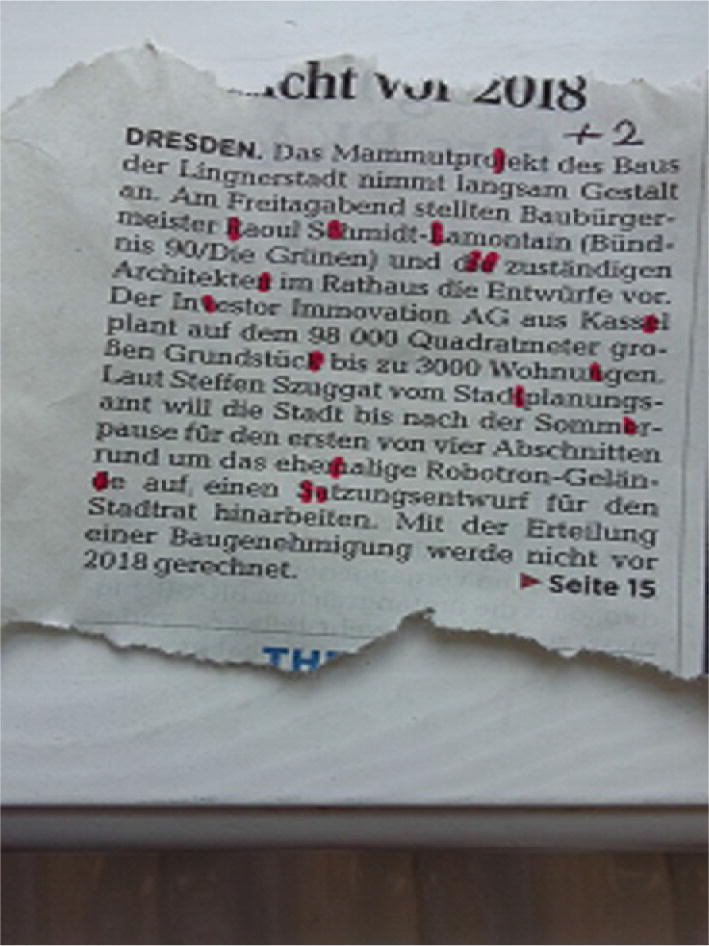 icht vor 2018
+2
DRESDEN. Das Mammutprojekt des Baus
der Lingnerstadt nimmt langsam Gestalt
an. Am Freitagabend stellten Baubürger-
meister Raoul Schmidt-Lamontain (Bünd-
nis 90/Die Grünen) und die zuständigen
Architekten im Rathaus die Entwürfe vor.
Der Investor Immovation AG aus Kassel
plant auf dem 98 000 Quadratmeter gro-
ßen Grundstück bis zu 3000 Wohnungen.
Laut Steffen Szuggat vom Stadtplanungs-
amt will die Stadt bis nach der Sommer-
pause für den ersten von vier Abschnitten
rund um das ehemalige Robotron-Gelän-
de auf einen Satzungsentwurf für den
Stadtrat hinarbeiten. Mit der Erteilung
einer Baugenehmigung werde nicht vor
2018 gerechnet.
Seite 15